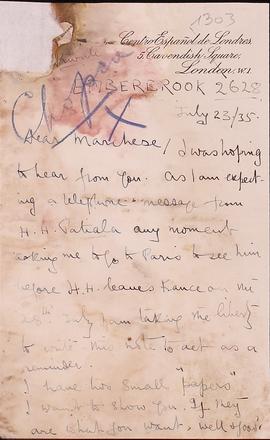 1303
Centro Español de Londres
5, Cavendish Square,
London, W.1.
EMBERBROOK 2628
July 23/35.
Dear Marchese/ I was hoping
to hear from you. As I am expect-
ing a telephone message from
H.H. Patiala any moment
asking me to go to Paris to see him
before H.H. leaves France on the
28th July I am taking the liberty
to write this note to act as a
reminder.
I have two small "papers"
I want to show you. If they
are what you want, well & good